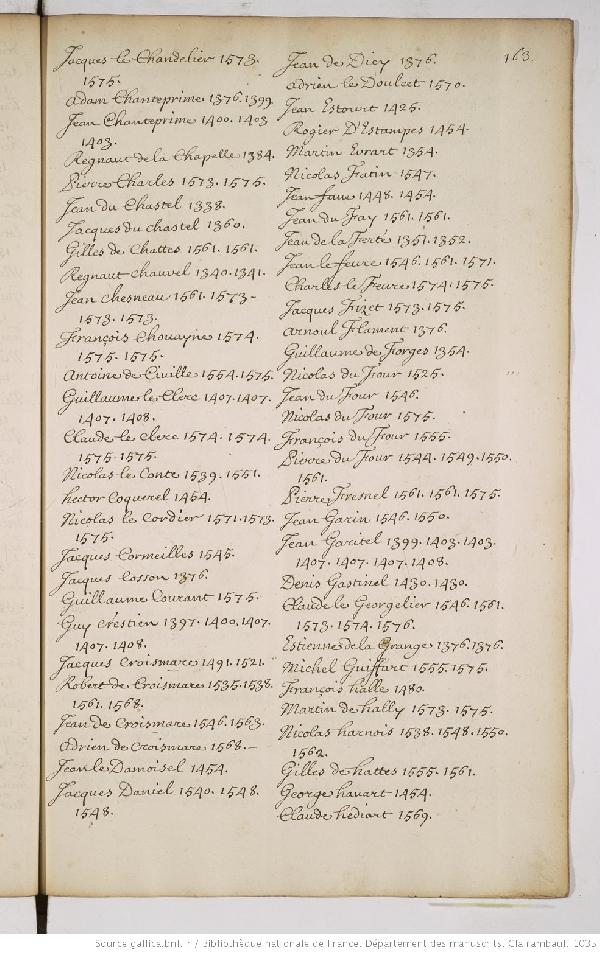 163.
Jacques le Chandelier 1573.
1575.
Adam Chanteprime 1376.1399
Jean Chanteprime 1400.1403
1403.
Regnaut de la Chapelle 1384.
Pierre Charles 1573.1575.
Jean du Chastel 1338.
Jacques du chastel 1360.
Gilles de Chattes 1561.1561.
Regnaut chauvel 1340.1341.
Jean chesneau 1561.1573-
1573.1573.
François Chouayne 1574.
1575.1575.
Antoine de Civille 1554.1575.
Guillaume le Clerc 1407.1407.
1407.1408.
Claude le clerc 1574.1574.
1575.1575.
Nicolas le Conte 1539.1551.
hector Coquerel 1454.
Nicolas le Cordier 1571.1573.
1575.
Jacques Cormeilles 1545.
Jacques Cosson 1376.
Guillaume Courant 1575.
Guy crestien 1397.1400.1407.
1407.1408.
Jacques Croismare 1491.1521.
Robert de Croismare 1535.1538.
1561.1568.
Jean de Croismare 1546.1563.
Adrien de Croismare 1568.-
Jean le Damoisel 1454.
Jacques Daniel 1540.1548.
1548.
Jean de Dicy 1376.
Adrien le Doulcet 1570.
Jean Estouvt 1425.
Rogier D'Estampes 1454.
Martin Evrart 1354.
Nicolas Fatin 1547.
Jean faue 1448.1454.
Jean du Fay 1561.1561.
Jean de la Ferté 1351.1352.
Jean le feure 1546.1561.1571.
Charles le Feure 1574.1575.
Jacques Fizet 1573.1575.
Arnoul Flament 1376.
Guillaume de Forges 1354.
Nicolas du Four 1525.
Jean du Four 1546.
Nicolas du Four 1575.
François du Four 1555.
Pierre du Four 1544.1549.1550.
1561.
Pierre Fresnel 1561.1561.1575.
Jean Garin 1546.1550.
Jean Garitel 1399.1403.1403.
1407.1407.1407.1408.
Denis Gastinel 1430.1430.
Claude le Georgelier 1546.1561.
1573.1574.1576.
Estienne de la Grange 1376.1376.
Michel Guiffart 1555.1575.
François halle 1480.
Martin de hally 1573.1575.
Nicolas harnois 1538.1548.1550.
1562.
Gilles de hattes 1555.1561.
George havart 1454.
Claude hediart 1569.
Source gallica.bnf.fr / Bibliothèque nationale de France. Département des manuscrits. Clairambault 1035